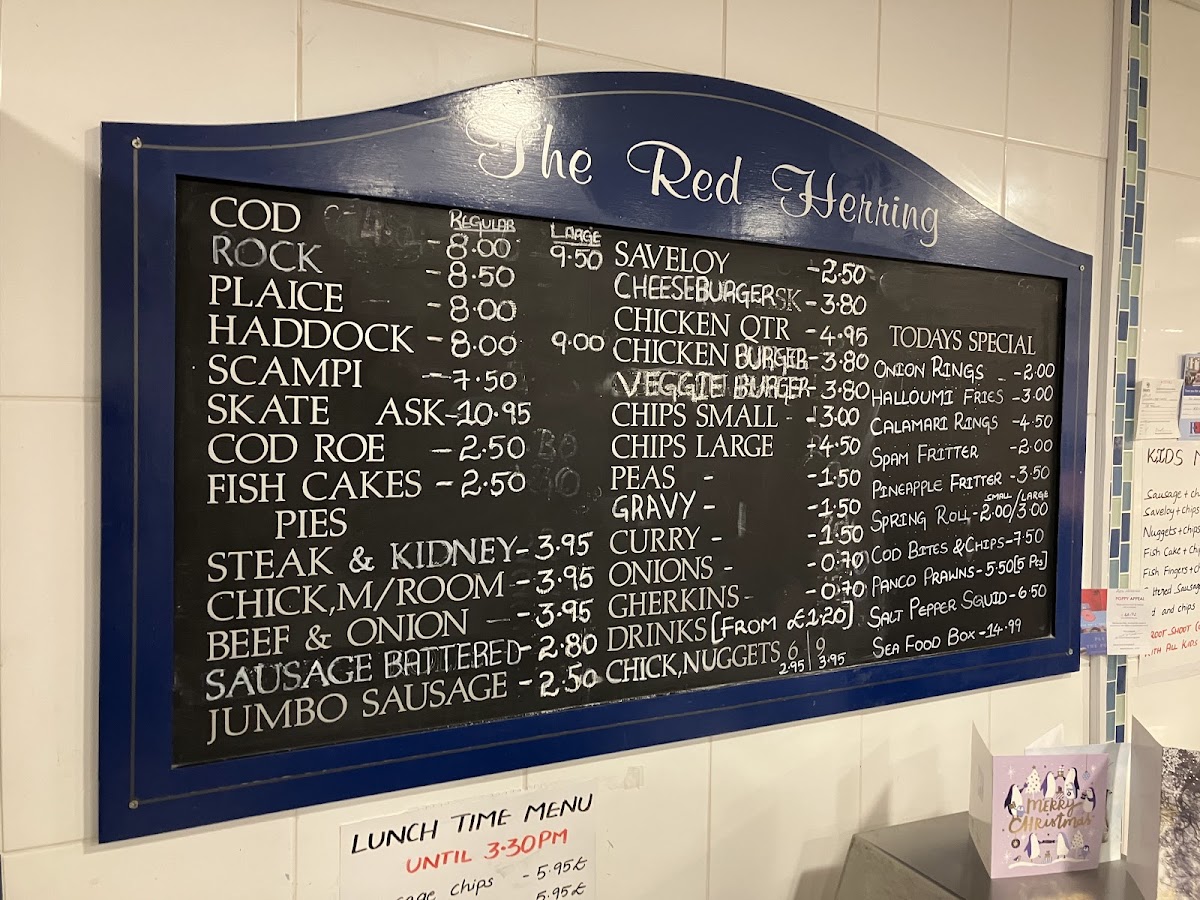 The Red Herring
REGULAR LARGE
COD -8.00 9.50
ROCK -8.50
PLAICE -8.00
HADDOCK -8.00 9.00
SCAMPI -7.50
SKATE ASK-10.95
COD ROE -2.50
FISH CAKES -2.50
PIES
STEAK & KIDNEY-3.95
CHICK,M/ROOM -3.95
BEEF & ONION -3.95
SAUSAGE BATTERED-2.80
JUMBO SAUSAGE -2.50
SAVELOY -2.50
CHEESEBURGERSK -3.80
CHICKEN QTR -4.95
CHICKEN BURGER-3.80
VEGGIE BURGER-3.80
CHIPS SMALL -3.00
CHIPS LARGE -4.50
PEAS - -1.50
GRAVY - -1.50
CURRY - -1.50
ONIONS - -0.70
GHERKINS- -0.70
DRINKS[FROM £1.20]
CHICK,NUGGETS 6 | 9
2.95 | 3.95
TODAYS SPECIAL
ONION RINGS - -2.00
HALLOUMI FRIES -3.00
CALAMARI RINGS -4.50
SPAM FRITTER -2.00
PINEAPPLE FRITTER -3.50
SMALL / LARGE
SPRING ROLL -2.00/3.00
COD BITES & CHIPS-7.50
PANCO PRAWNS-5.50[5 PCS]
SALT PEPPER SQUID-6.50
SEA FOOD BOX-14.99
LUNCH TIME MENU
UNTIL 3.30PM
chips -5.95£
-5.95£
KIDS
Sausage + ch
Saveloy + chips
Nuggets + chips
Fish Cake + chi
Fish Fingers + c
Sausag
and chips
WITH ALL KIDS
POPPY APPEAL
MERRY
CHRistmas